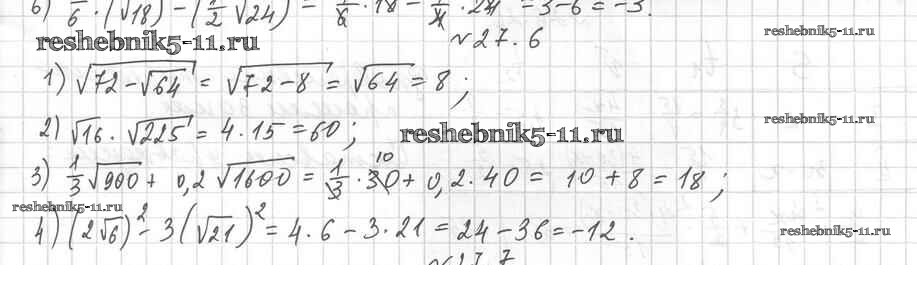 6) 1/6 · (√18)² − (1/2 √24)² = 1/6 · 18 − 1/4 · 24 = 3 − 6 = −3.
reshebnik5-11.ru
reshebnik5-11.ru
№ 27.6
1) √(72 − √64) = √(72 − 8) = √64 = 8 ;
reshebnik5-11.ru
2) √16 · √225 = 4 · 15 = 60 ;
reshebnik5-11.ru
3) 1/3 √900 + 0,2 √1600 = 1/3 · 30 10 + 0,2 · 40 = 10 + 8 = 18 ;
reshebnik5-11.ru
4) (2√6)² − 3(√21)² = 4 · 6 − 3 · 21 = 24 − 36 = −12 .
reshebnik5-11.ru
№ 27.7